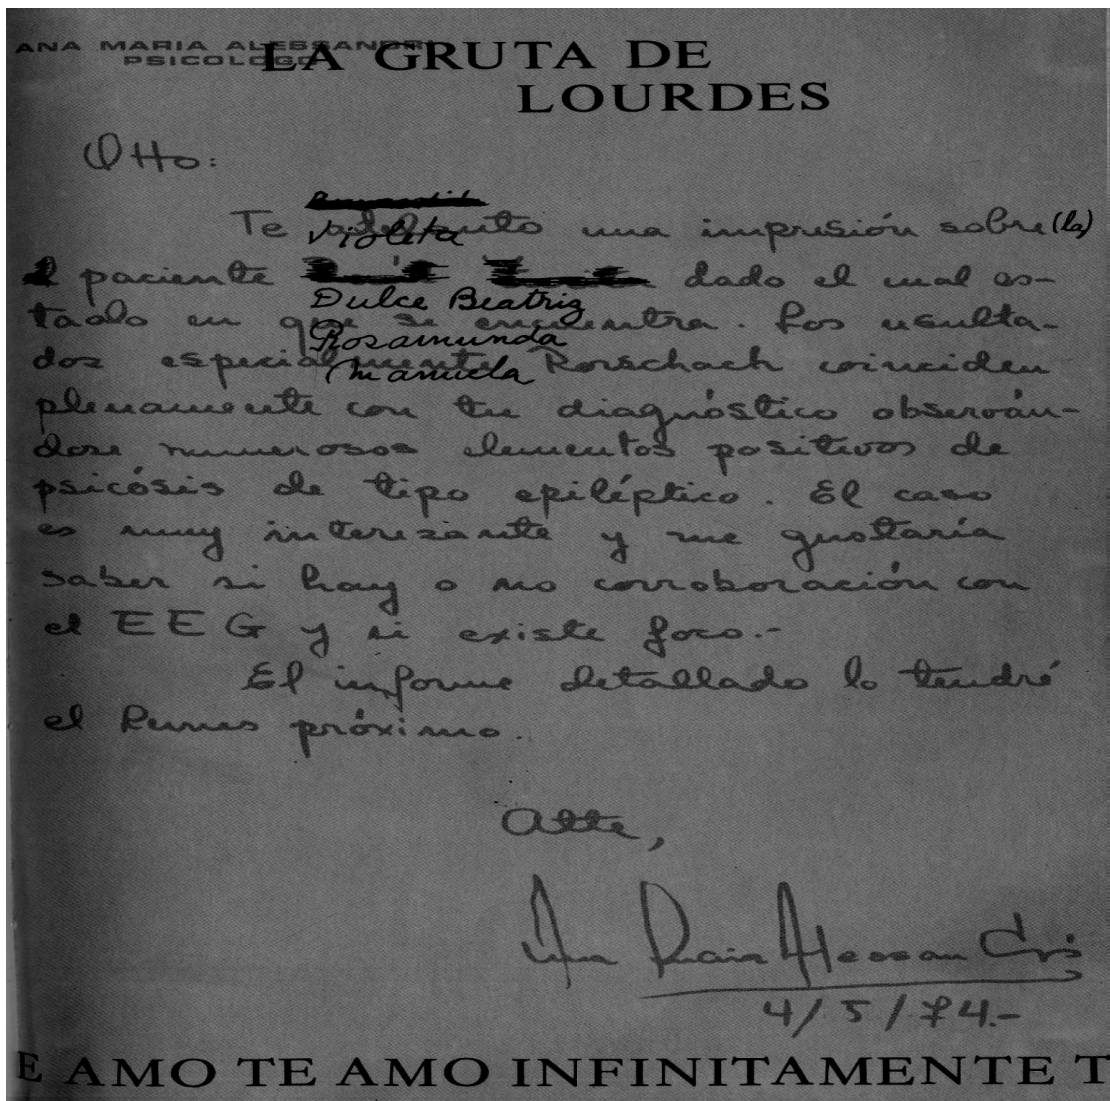 ANA MARIA ALESSANDRI
PSICOLOGO
LA GRUTA DE
LOURDES
Otto:
Te adelanto una impresión sobre (la)
Violeta
paciente dado el cual es-
Dulce Beatriz
tado en que se encuentra. Los resulta-
Rosamunda
dos especialmente Rorschach coinciden
Manuela
plenamente con tu diagnóstico observán-
dose numerosos elementos positivos de
psicósis de tipo epiléptico. El caso
es muy interesante y me gustaría
saber si hay o no corroboración con
el EEG y si existe foco.-
El informe detallado lo tendré
el Lunes próximo.
Atte,
Ana María Alessandri
4/5/74.-
E AMO TE AMO INFINITAMENTE T